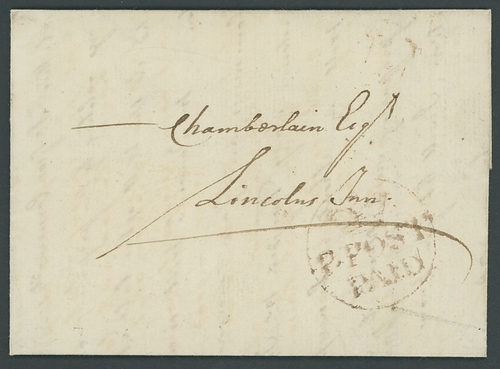 — Chamberlain Esqr.
Lincolns Inn.
P. POST
PAID